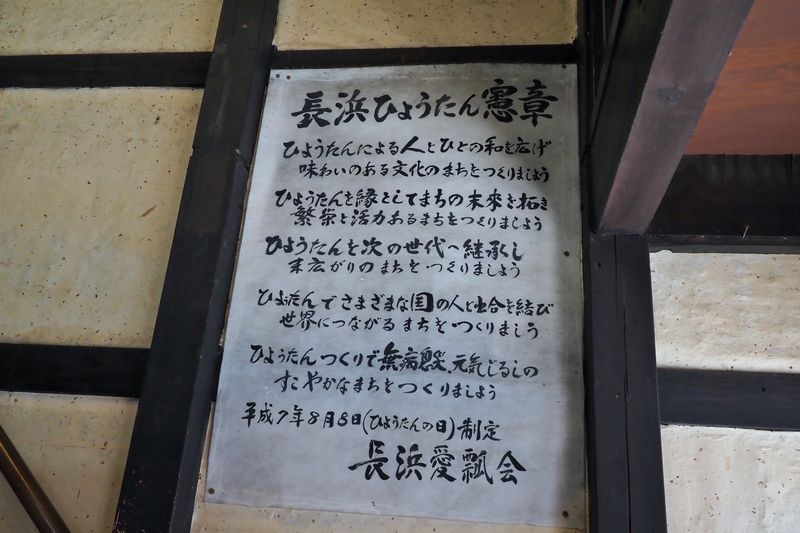 長浜ひょうたん憲章
ひょうたんによる人とひとの和を広げ
味わいのある文化のまちをつくりましょう
ひょうたんを縁としてまちの未来を拓き
繁栄と活力あるまちをつくりましょう
ひょうたんを次の世代へ継承し
末広がりのまちをつくりましょう
ひょうたんでさまざまな国の人と出合を結び
世界につながるまちをつくりましょう
ひょうたんつくりで無病息災、元気じるしの
すこやかなまちをつくりましょう
平成7年8月8日(ひょうたんの日)制定
長浜愛瓢会